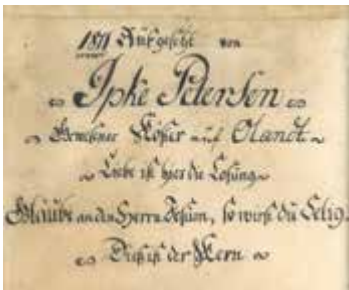 1871 Aufgesetzt von
Ipke Petersen
Gewesener Köster auf Olandt.
Liebe ist hier die Losung.
Glaube an den Herrn Jesum, so wirst du Selig.
Dies ist der Kern